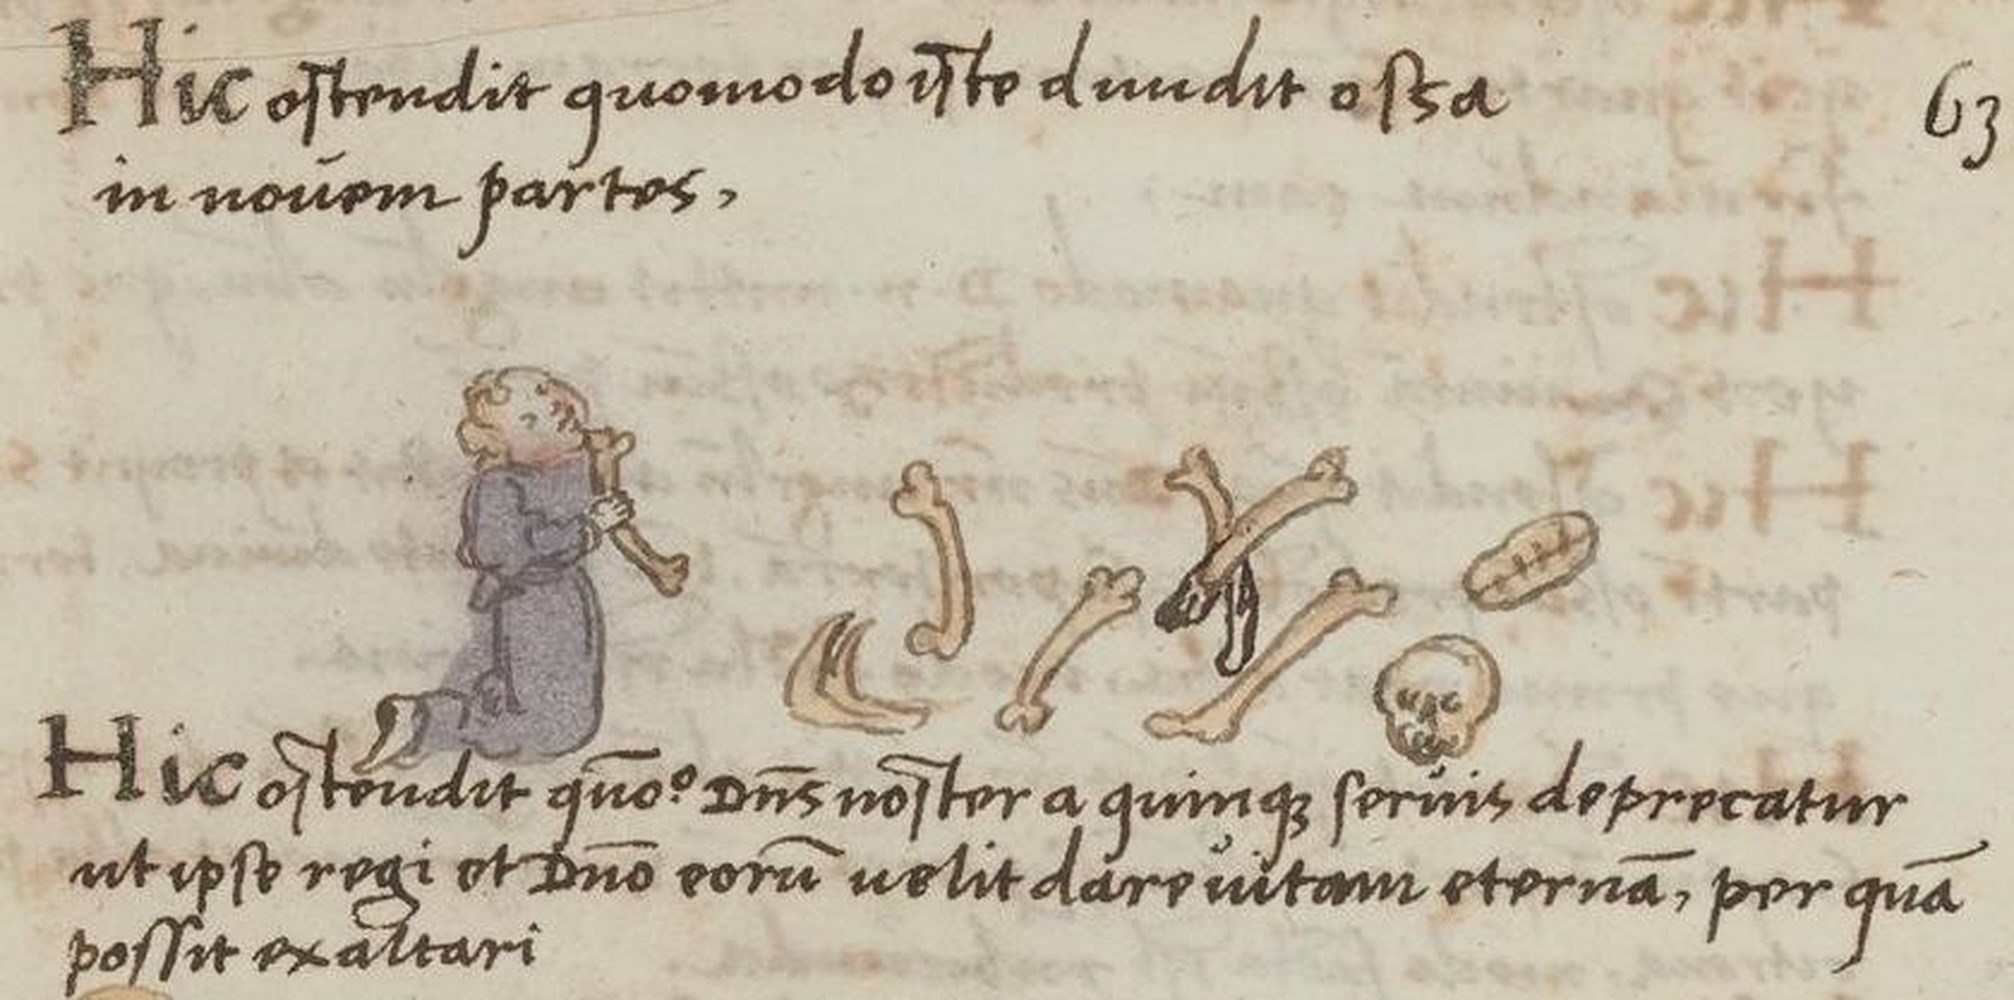 Hic ostendit quomodo iste diuidit ossa
63
in nouem partes,
Hic ostendit quō° Dn̄s nōster a quinqꝫ seruis deprecatur
ut ipse regi et Dn̄o eorū uelit dare uitam eternā, per quā
possit exaltari